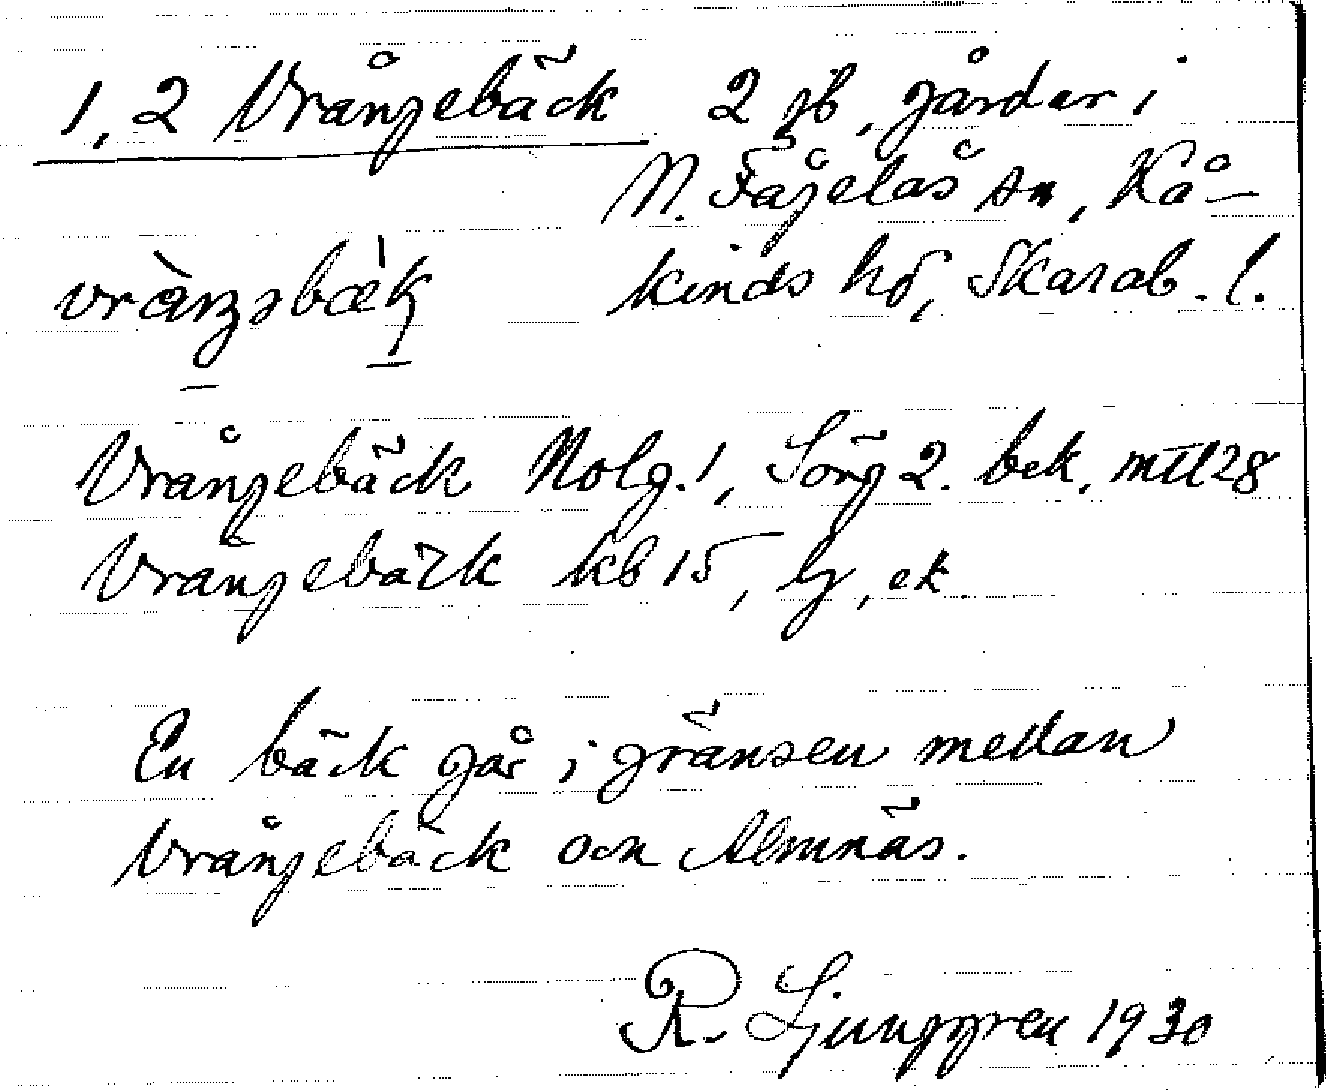 1, 2 Vrångebäck 2 gb, gårdar i
N. Fågelås sn, Kå-
kinds hd, Skarab. l.
Vrångebäck Nolg. 1, Sörg 2. bek. mtl 28
Vrångebäck kb 15, ly, ek.
En bäck går i gränsen mellan
Vrångebäck och Almnäs.
R. Ljunggren 1930